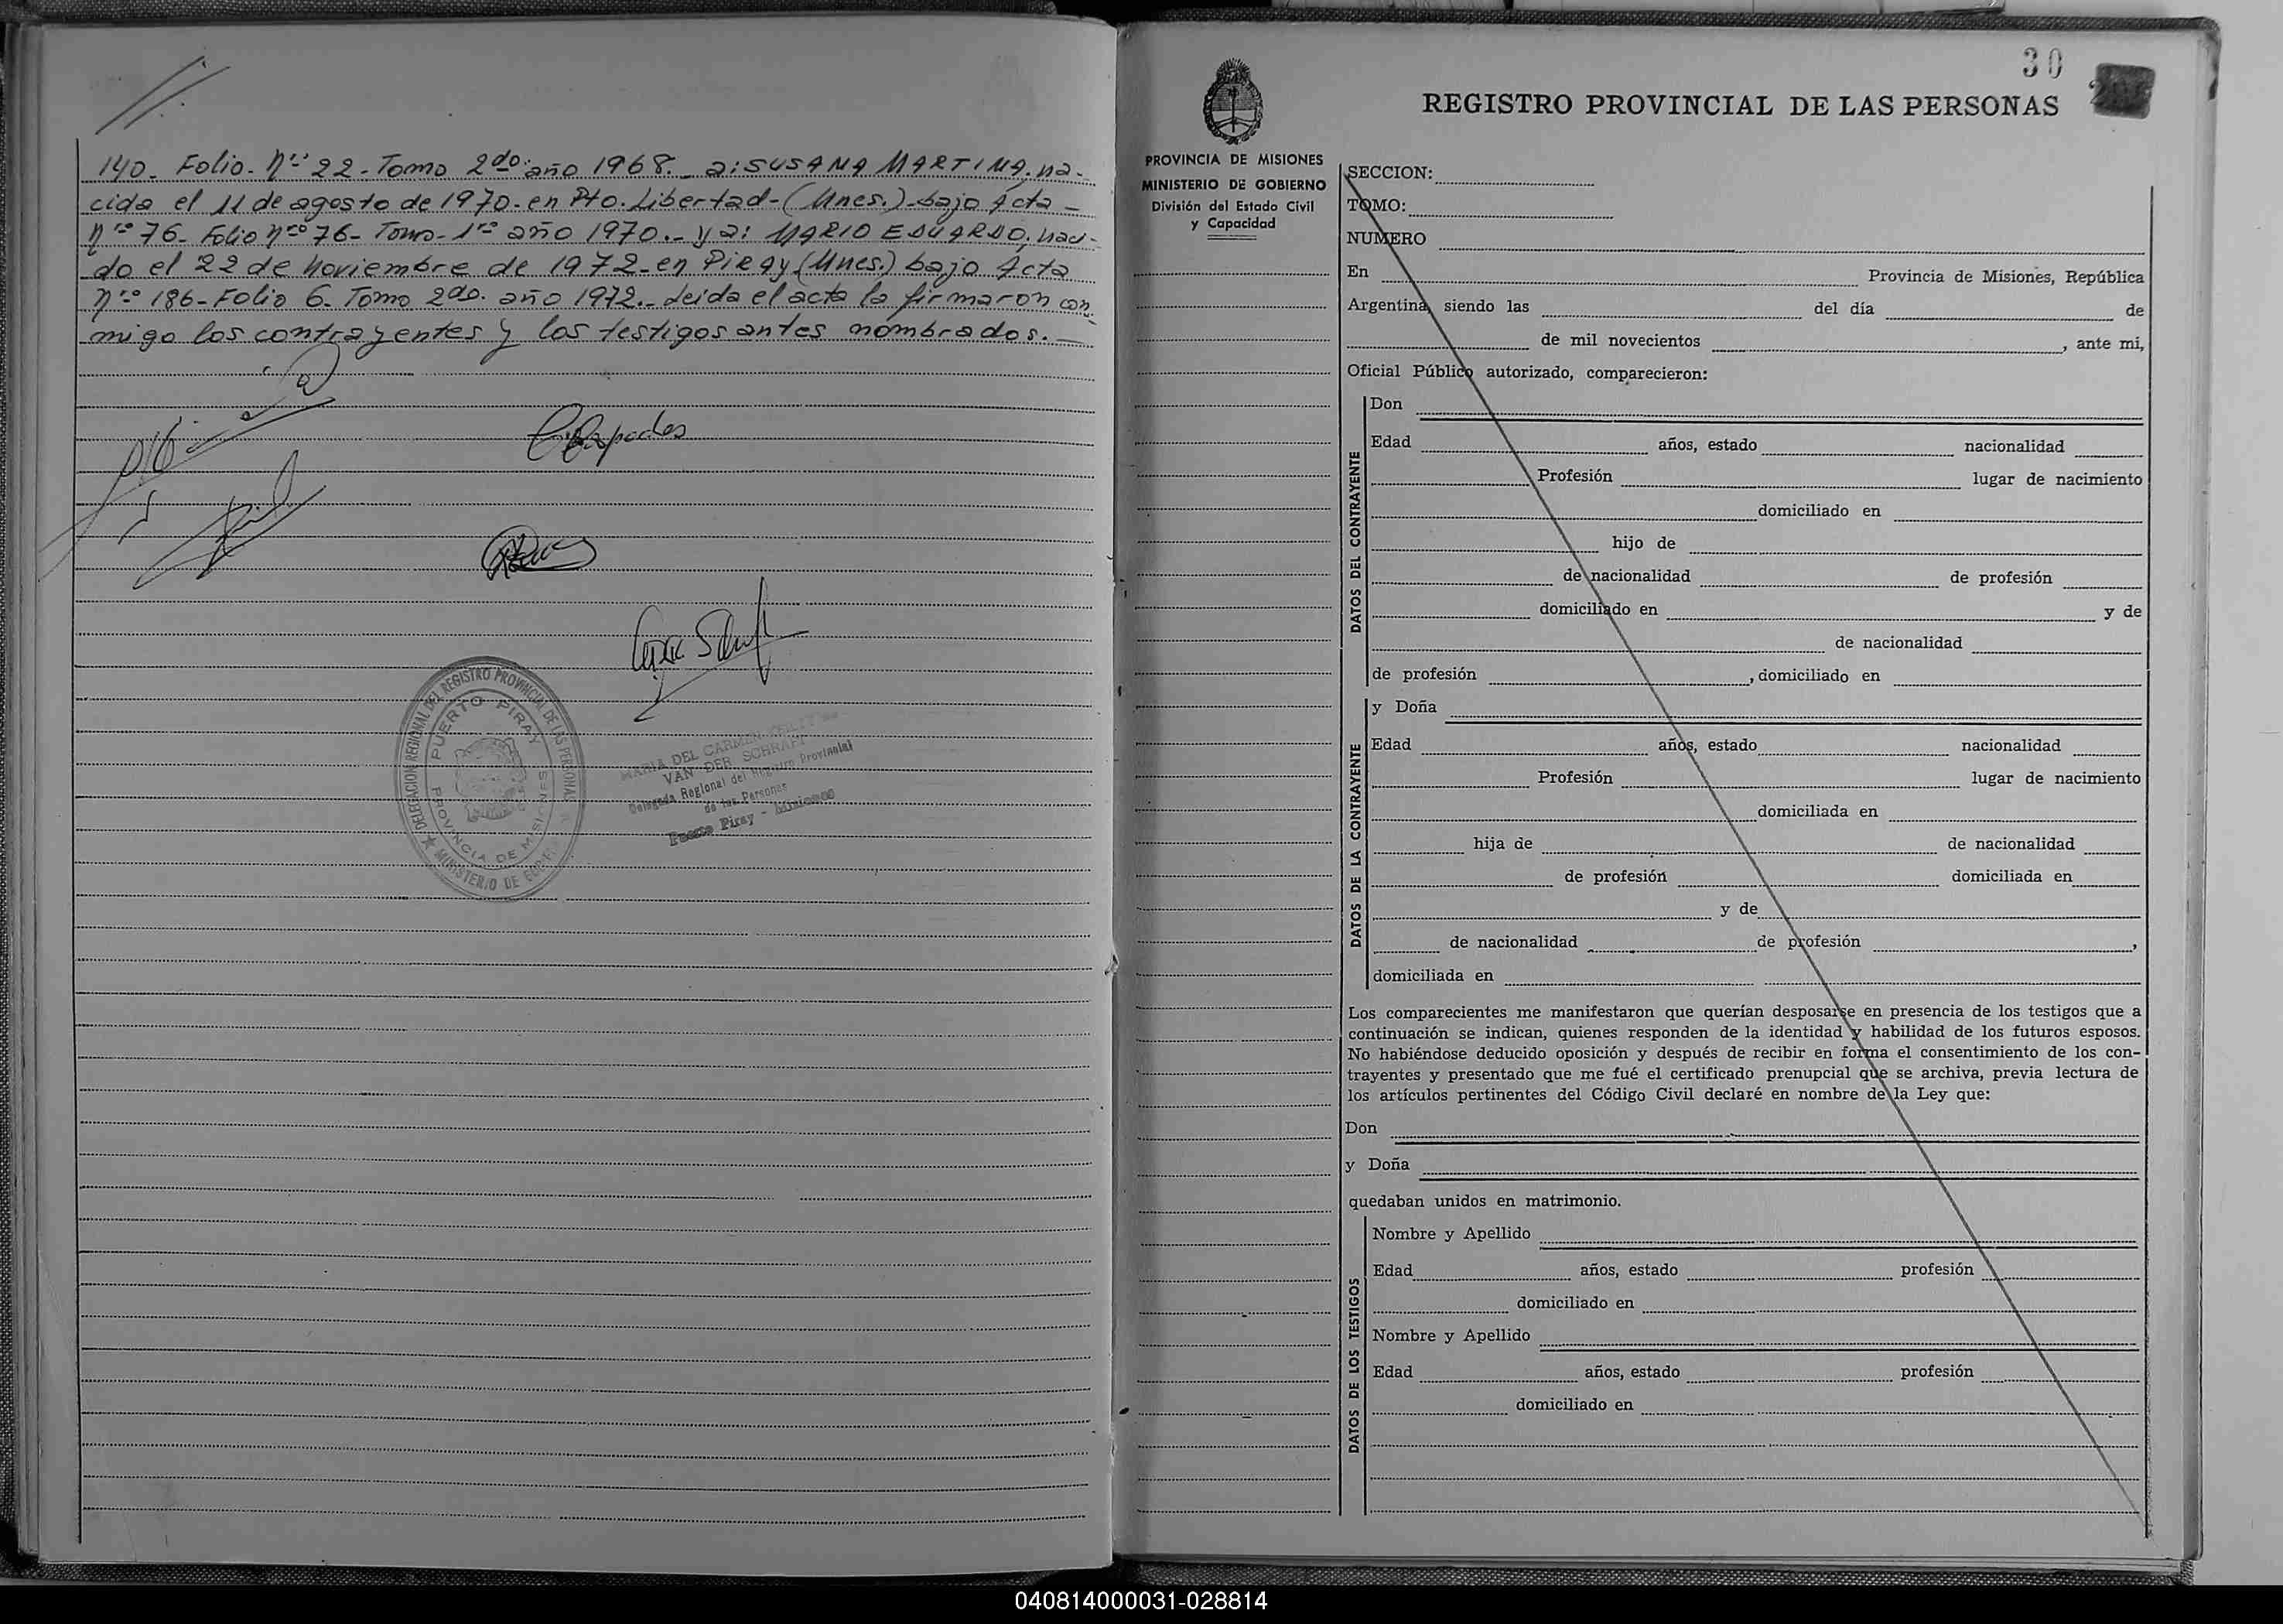 140. Folio. Nº 22. Tomo 2do. año 1968. a: SUSANA MARTINA, na-
cida el 11 de agosto de 1970. en Pto. Libertad-(Mnes.) bajo Acta
nro 76. Folio nro 76- Tomo- 1ro año 1970.- y a: MARIO EDUARDO, naci-
do el 22 de noviembre de 1972. en Piray (Mnes.) bajo Acta
nro 186- Folio 6. Tomo 2do. año 1972.- Leida el acta la firmaron con
migo los contrayentes y los testigos antes nombrados.-
DELEGACION REGIONAL DEL REGISTRO PROVINCIAL DE LAS PERSONAS
PUERTO PIRAY
PROVINCIA DE MISIONES
MINISTERIO DE
MARIA DEL CARMEN
VAN DER
Delegada Regional del Registro Provincial
de las Personas
Puerto Piray - Misiones
30
REGISTRO PROVINCIAL DE LAS PERSONAS
PROVINCIA DE MISIONES
MINISTERIO DE GOBIERNO
División del Estado Civil
y Capacidad
SECCION:
TOMO:
NUMERO
En Provincia de Misiones, República
Argentina, siendo las del día de
de mil novecientos , ante mi,
Oficial Público autorizado, comparecieron:
DATOS DEL CONTRAYENTE
Don
Edad años, estado nacionalidad
Profesión lugar de nacimiento
domiciliado en
hijo de
de nacionalidad de profesión
domiciliado en y de
de nacionalidad
de profesión , domiciliado en
DATOS DE LA CONTRAYENTE
y Doña
Edad años, estado nacionalidad
Profesión lugar de nacimiento
domiciliada en
hija de de nacionalidad
de profesión domiciliada en
y de
de nacionalidad de profesión ,
domiciliada en
Los comparecientes me manifestaron que querían desposarse en presencia de los testigos que a
continuación se indican, quienes responden de la identidad y habilidad de los futuros esposos.
No habiéndose deducido oposición y después de recibir en forma el consentimiento de los con-
trayentes y presentado que me fué el certificado prenupcial que se archiva, previa lectura de
los artículos pertinentes del Código Civil declaré en nombre de la Ley que:
Don
y Doña
quedaban unidos en matrimonio.
DATOS DE LOS TESTIGOS
Nombre y Apellido
Edad años, estado profesión
domiciliado en
Nombre y Apellido
Edad años, estado profesión
domiciliado en
040814000031-028814